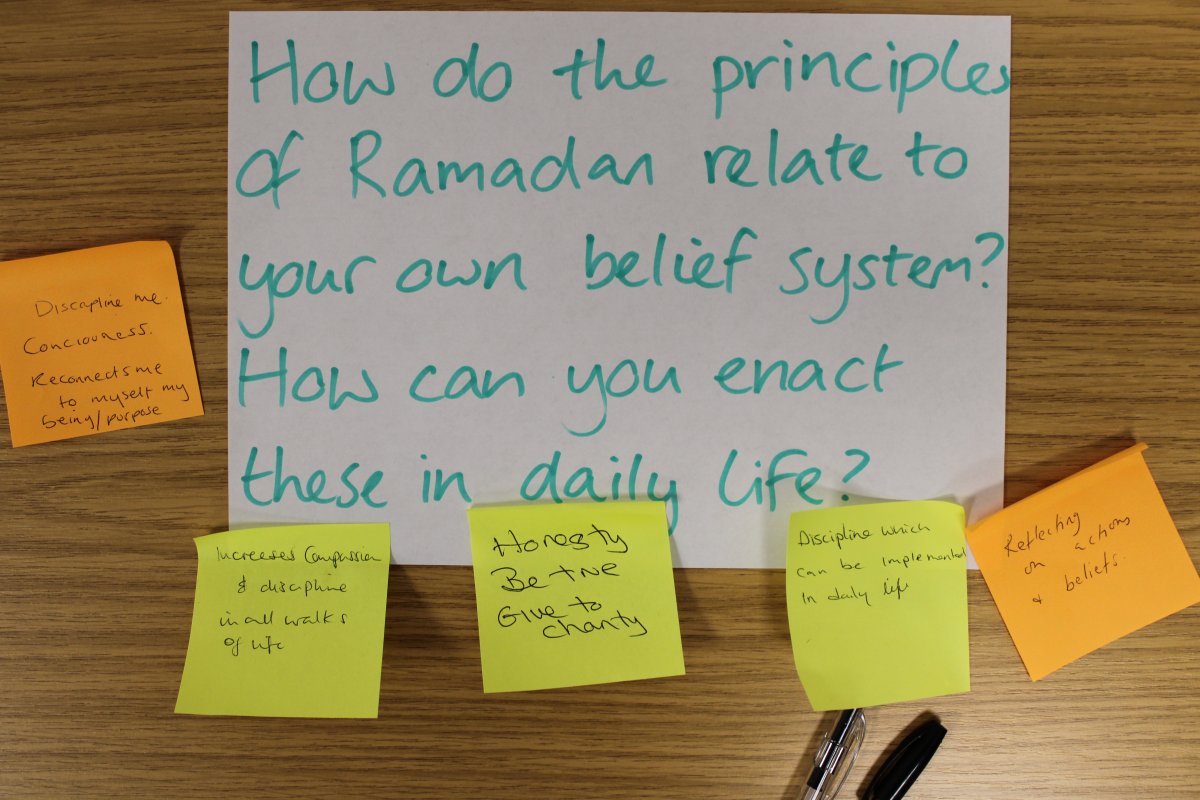 How do the principles
of Ramadan relate to
your own belief system?
How can you enact
these in daily life?
Discipline me.
Conciouness.
Reconnects me
to myself my
being/purpose
Increeses Compassion
& discipline
in all walks
of life
Honesty
Be true
Give to
charity
Discipline which
can be implemented
in daily life
Reflecting
on actions
+ beliefs.